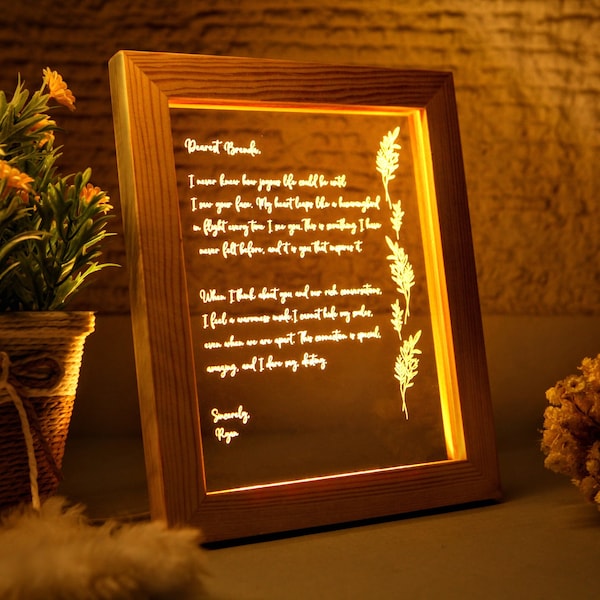 Dearest Brenda,
I never knew how joyous life could be until
I saw your face. My heart leaps like a hummingbird
in flight every time I see you. This is something I have
never felt before, and it is you that inspires it.
When I think about you and our rich conversations,
I feel a warmness inside. I cannot hide my smiles,
even when we are apart. This connection is special,
amazing, and I dare say, destiny.
Sincerely,
Ryan